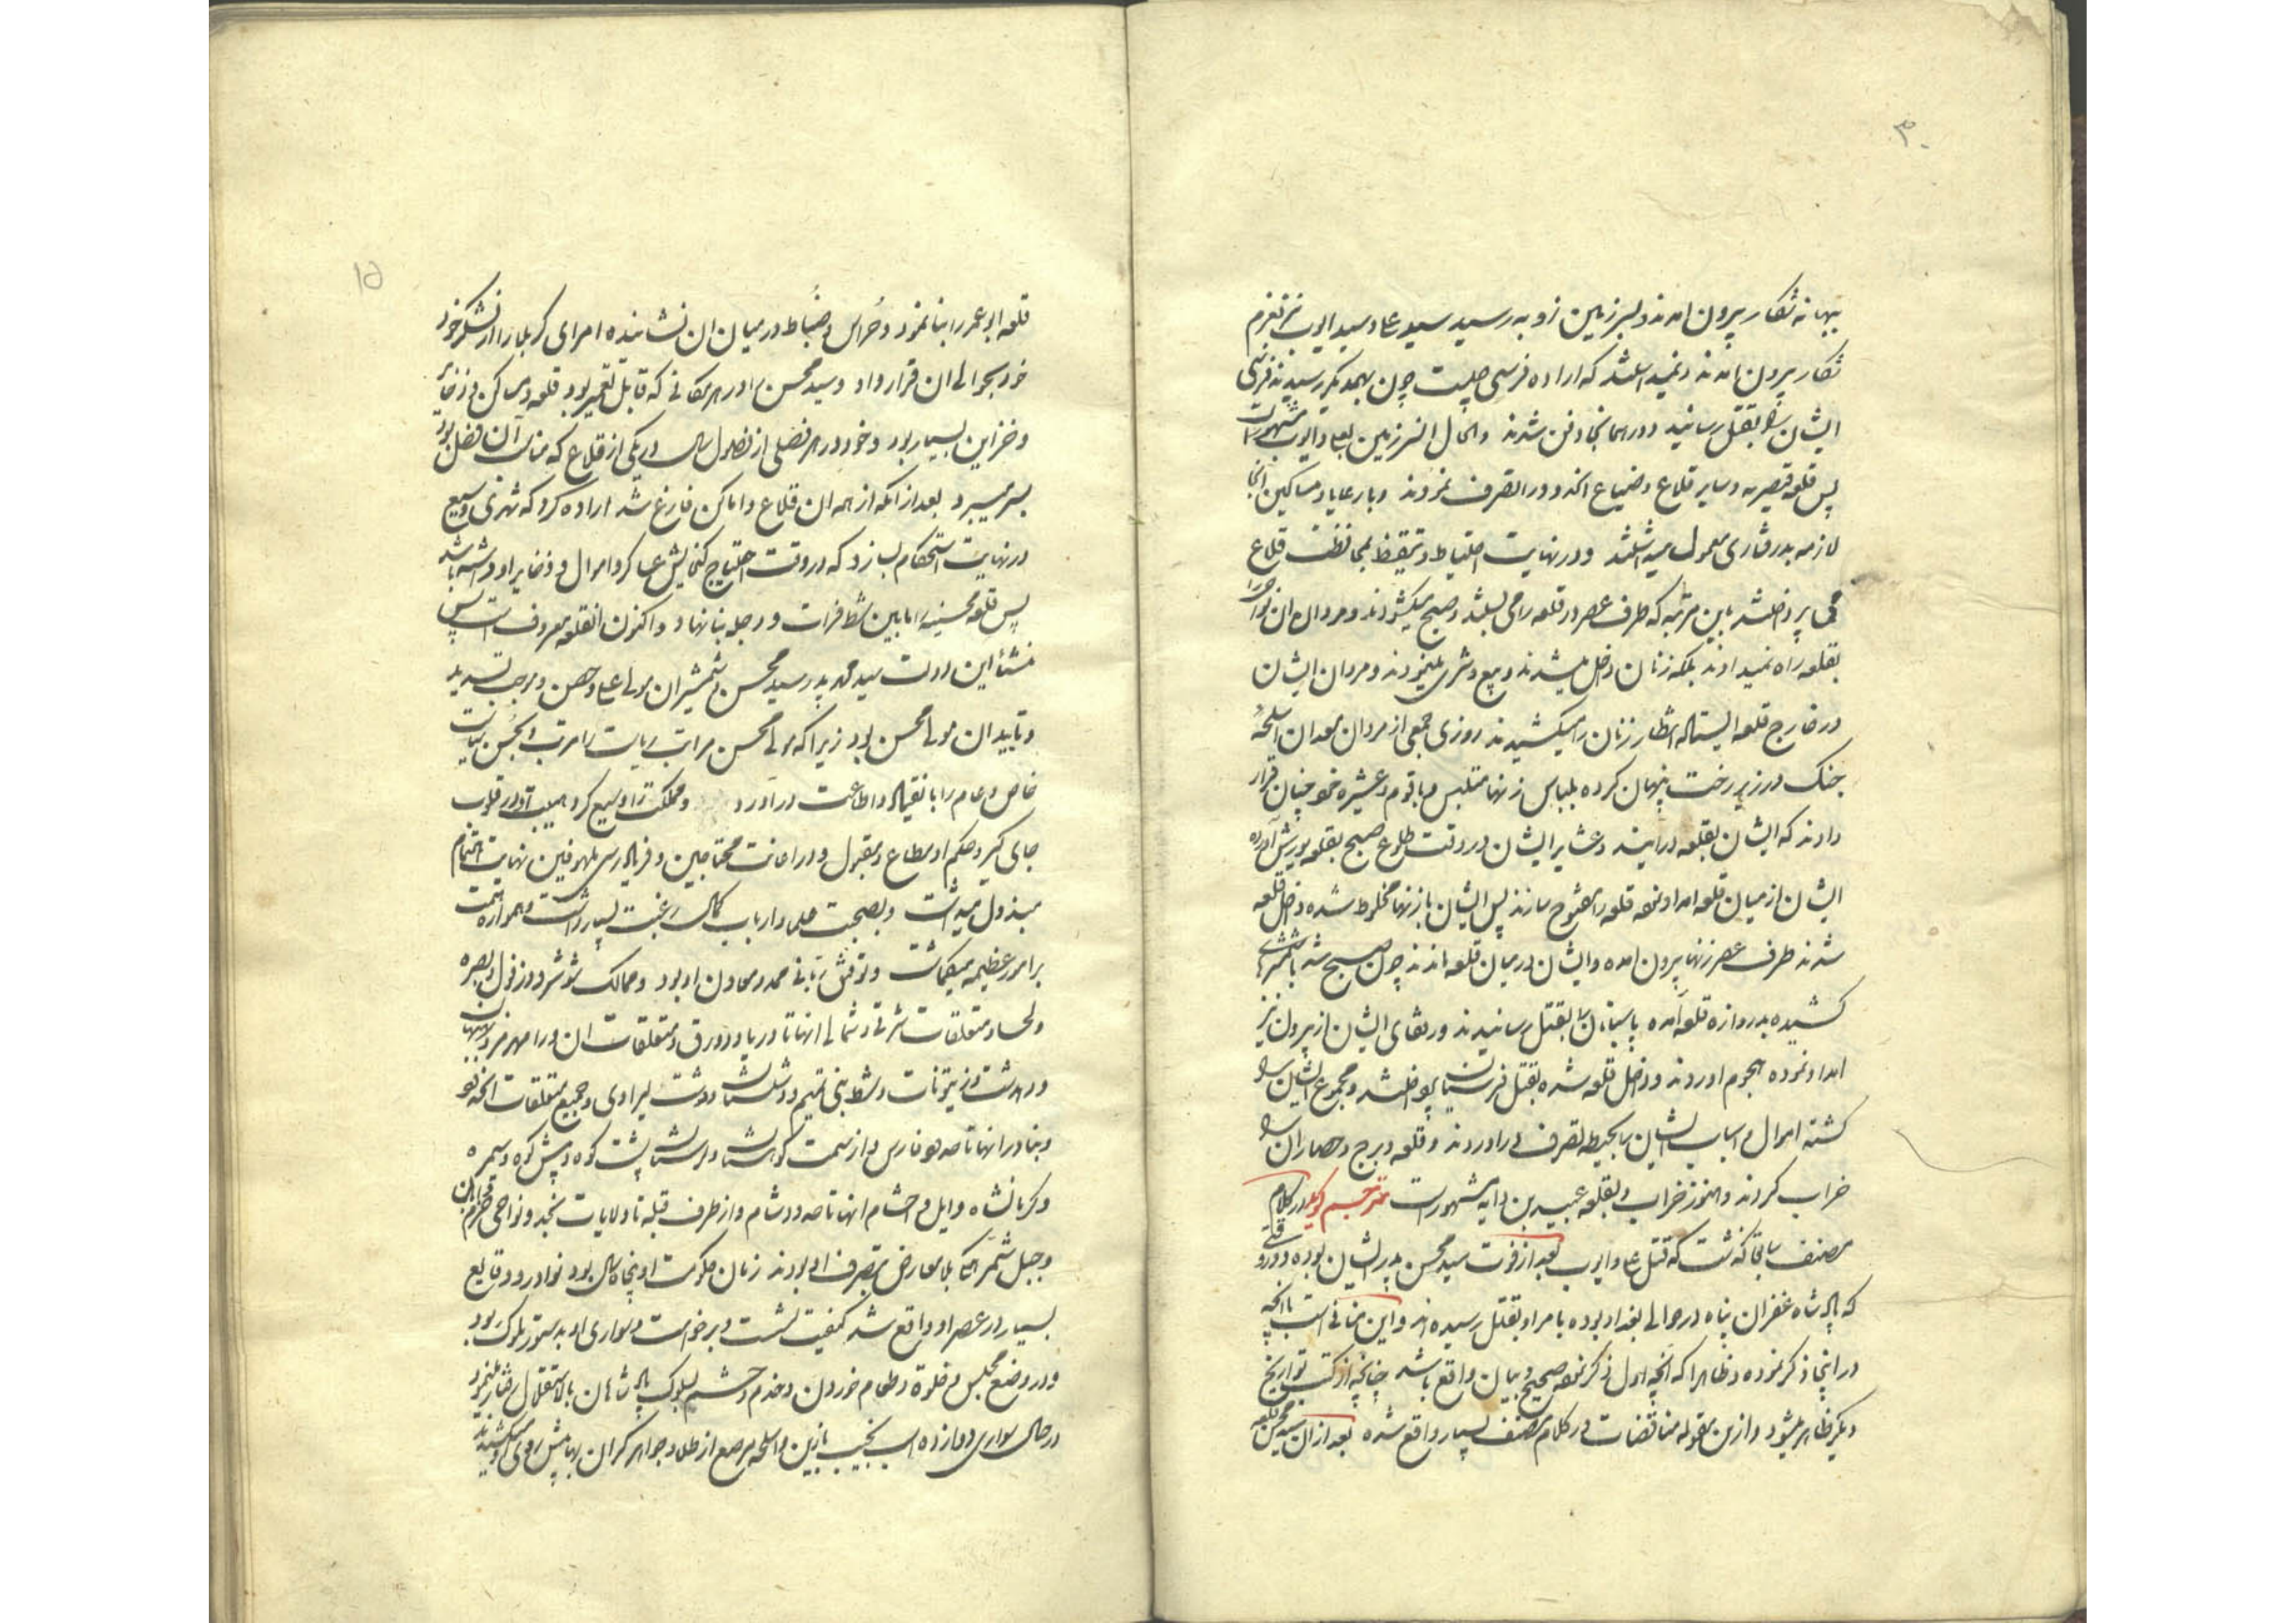 ۳۰
بهانه شکار بیرون امدند و بسرزمین زویه رسید سید علی و سید ایوب نیز بعزم
شکار بیرون امدند و نمیدانستند که اراده فرسی چیست چون بهمدیگر رسیدند فرسی
ایشان را بقتل رسانید و در همانجا دفن شدند والحال انسرزمین بعلی و ایوب مشهور است
پس قلعه قیصریه و سایر قلاع و ضیاع انحدود را تصرف نمودند و با رعایا و مساکین انجا
لازمه بدرفتاری معمول میداشتند و در نهایت احتیاط و تیقظ بمحافظت قلاع
می پرداختند باین مرتبه که طرف عصر در قلعه را می بستند و صبح میکشودند و مردان ان نواحی را
بقلعه راه نمیدادند بلکه زنان داخل میشدند و بیع و شری مینمودند و مردان ایشان
در خارج قلعه ایستاده انتظار زنان را میکشیدند روزی جمعی از مردان معدان اسلحهٔ
جنک در زیر رخت پنهان کرده بلباس زنها متلبس و با قوم و عشیره خود چنان قرار
دادند که ایشان بقلعه درایند و عشایر ایشان در وقت طلوع صبح بقلعه یورش آورده
ایشان از میان قلعه امداد نموده قلعه را مفتوح سازند پس ایشان با زنها مخلوط شده داخل قلعه
شدند طرف عصر زنها بیرون امده و ایشان در میان قلعه ماندند چون صبح شد با شمشیرهای
کشیده بدروازه قلعه آمده پاسبانان را بقتل رسانیدند و رفقای ایشان از بیرون نیز
امداد نموده هجوم اوردند و داخل قلعه شده بقتل فرسیان پرداختند و مجموع ایشان را
کشته اموال و اسباب ایشان را بحیطه تصرف در اوردند و قلعه و برج و حصار ان را
خراب کردند و هنوز خراب و بقلعه عبید بن دایه مشهور است مترجم کوید در کلام
مصنف سابقا گذشت که قتل علی و ایوب بعد از فوت سید محسن پدر ایشان بوده و در وقتی
که پادشاه غفران پناه در حوالی بغداد بوده بامر او بقتل رسیده اند و این منافی است با انچه
در اینجا ذکر نموده و ظاهرا که انچه اول ذکر نموده صحیح و بیان واقع باشد چنانچه از کتب تواریخ
دیگر ظاهر میشود و ازین مقوله مناقضات در کلام مصنف بسیار واقع شده بعد ازان سید محسن قلعه
۱۵
قلعه ابو عمر را بنا نمود و حُراس و ضُباط در میان ان نشانیده امرای کربلا را از لشکر خود
خود بحوالی ان قرار داد و سید محسن را در هر مکانی که قابل تعمیر بود قلعه و مساکن و ذخایر
و خزاین بسیار بود و خود در هر فصلی از فصول سال در یکی از قلاع که مناسب آن فصل بود
بسر میبرد بعد از انکه از همه ان قلاع و اماکن فارغ شد اراده کرد که شهری وسیع
در نهایت استحکام بسازد که در وقت احتیاج گنجایش عساکر و اموال و ذخایر او داشته باشد
پس قلعه محسنیه را مابین شط فرات و دجله بنا نهاد و اکنون انقلعه معروف است پس
منشأ این دولت سید محمد پدر سید محسن و شمشیران مولی علی و حصن و موجب تسدید
و تایید ان مولی محسن بود زیرا که مولی محسن مراتب ریاست را مرتب و بحُسن سیاست
خاص و عام را بانقیاد و اطاعت در اورد و مملکت او وسیع کرد و هیبت او در قلوب
جای گیر و حکم او مطاع و مقبول و در اعانت محتاجین و فریادرسی ملهوفین نهایت اهتمام
مبذول میداشت و بصحبت علما و ارباب کمال رغبت بسیار داشت و همواره همت
بر امور عظیمه میگماشت و توفیق ربانی ممد و معاون او بود و ممالک شوشتر و دزفول و بصره
ولحسا و متعلقات شرقی و شمالی انها تا دریا و دورق و متعلقات ان و رامهرمز و بهبهان
و دهدشت و زیتونات و شط بنی تمیم و دشت لیراوی و جمیع متعلقات انحدود
و بنادر انها تا حدود فارس و از سمت کردستان و لرستان پشت کوه و پیش کوه و سیمره
و کرمانشاه و ایل و احشام انها تا حدود شام و از طرف قبله تا ولایات نجد و نواحی حرمین
و جبل شمر همگی بلا معارض بتصرف او بودند زمان حکومت او پنجاه سال بود نوادر و وقایع
بسیار در عصر او واقع شد کیفیت نشست و برخواست و سواری او بدستور ملوک بود
و در وضع مجلس و خلوة و طعام خوردن و خدم و حشم بسلوک پادشاهان بالاستقلال رفتار مینمود
در حال سواری دوازده اسب نجیب بازین و اسلحه مرصع از طلا و جواهر گران بها پیش روی او میکشیدند